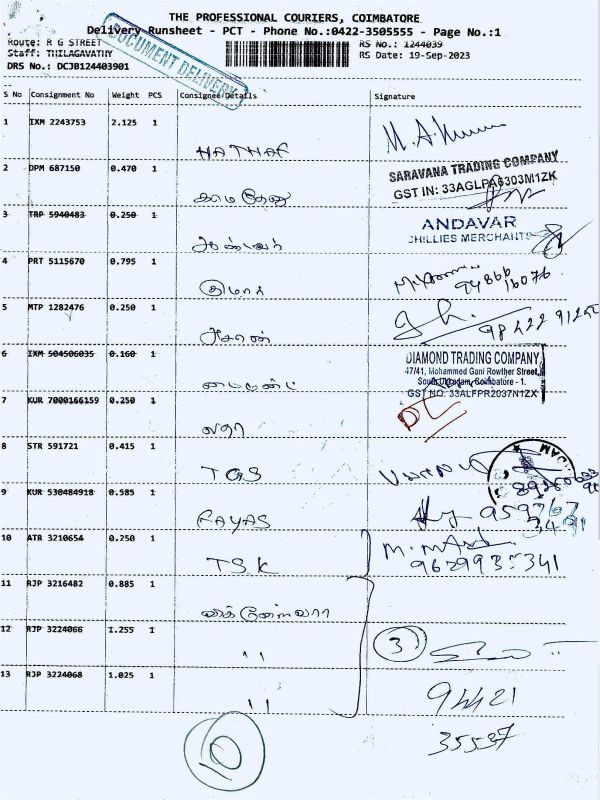 THE PROFESSIONAL COURIERS, COIMBATORE
Delivery Runsheet - PCT - Phone No.:0422-3505555 - Page No.:1
Route: R G STREET
Staff: THILAGAVATHY
DRS No.: DCJB124403901
DOCUMENT DELIVERY
RS No.: 1244039
RS Date: 19-Sep-2023
S No Consignment No Weight PCS Consignee Details Signature
1 IXM 2243753 2.125 1
2 DPM 687150 0.470 1 காமதேனு
SARAVANA TRADING COMPANY
GST IN: 33AGLPA6303M1ZK
3 TRP 5940483 0.250 1
ANDAVAR
CHILLIES MERCHANTS
4 PRT 5115670 0.795 1 குமார்
94866
16076
5 MTP 1282476 0.250 1
98422 91250
6 IXM 504506035 0.160 1
DIAMOND TRADING COMPANY
47/41, Mohammed Gani Rowther Street,
South Ukkadam, Coimbatore - 1.
GST NO: 33ALFPR2037N1ZX
7 KUR 7000166159 0.250 1 லதா
8 STR 591721 0.415 1 TGS
9 KUR 530484918 0.585 1 FAYAS
10 ATR 3210654 0.250 1 TSK
9629935341
11 RJP 3216482 0.885 1
12 RJP 3224066 1.255 1 " 3
13 RJP 3224068 1.025 1 "
94421
35537
10